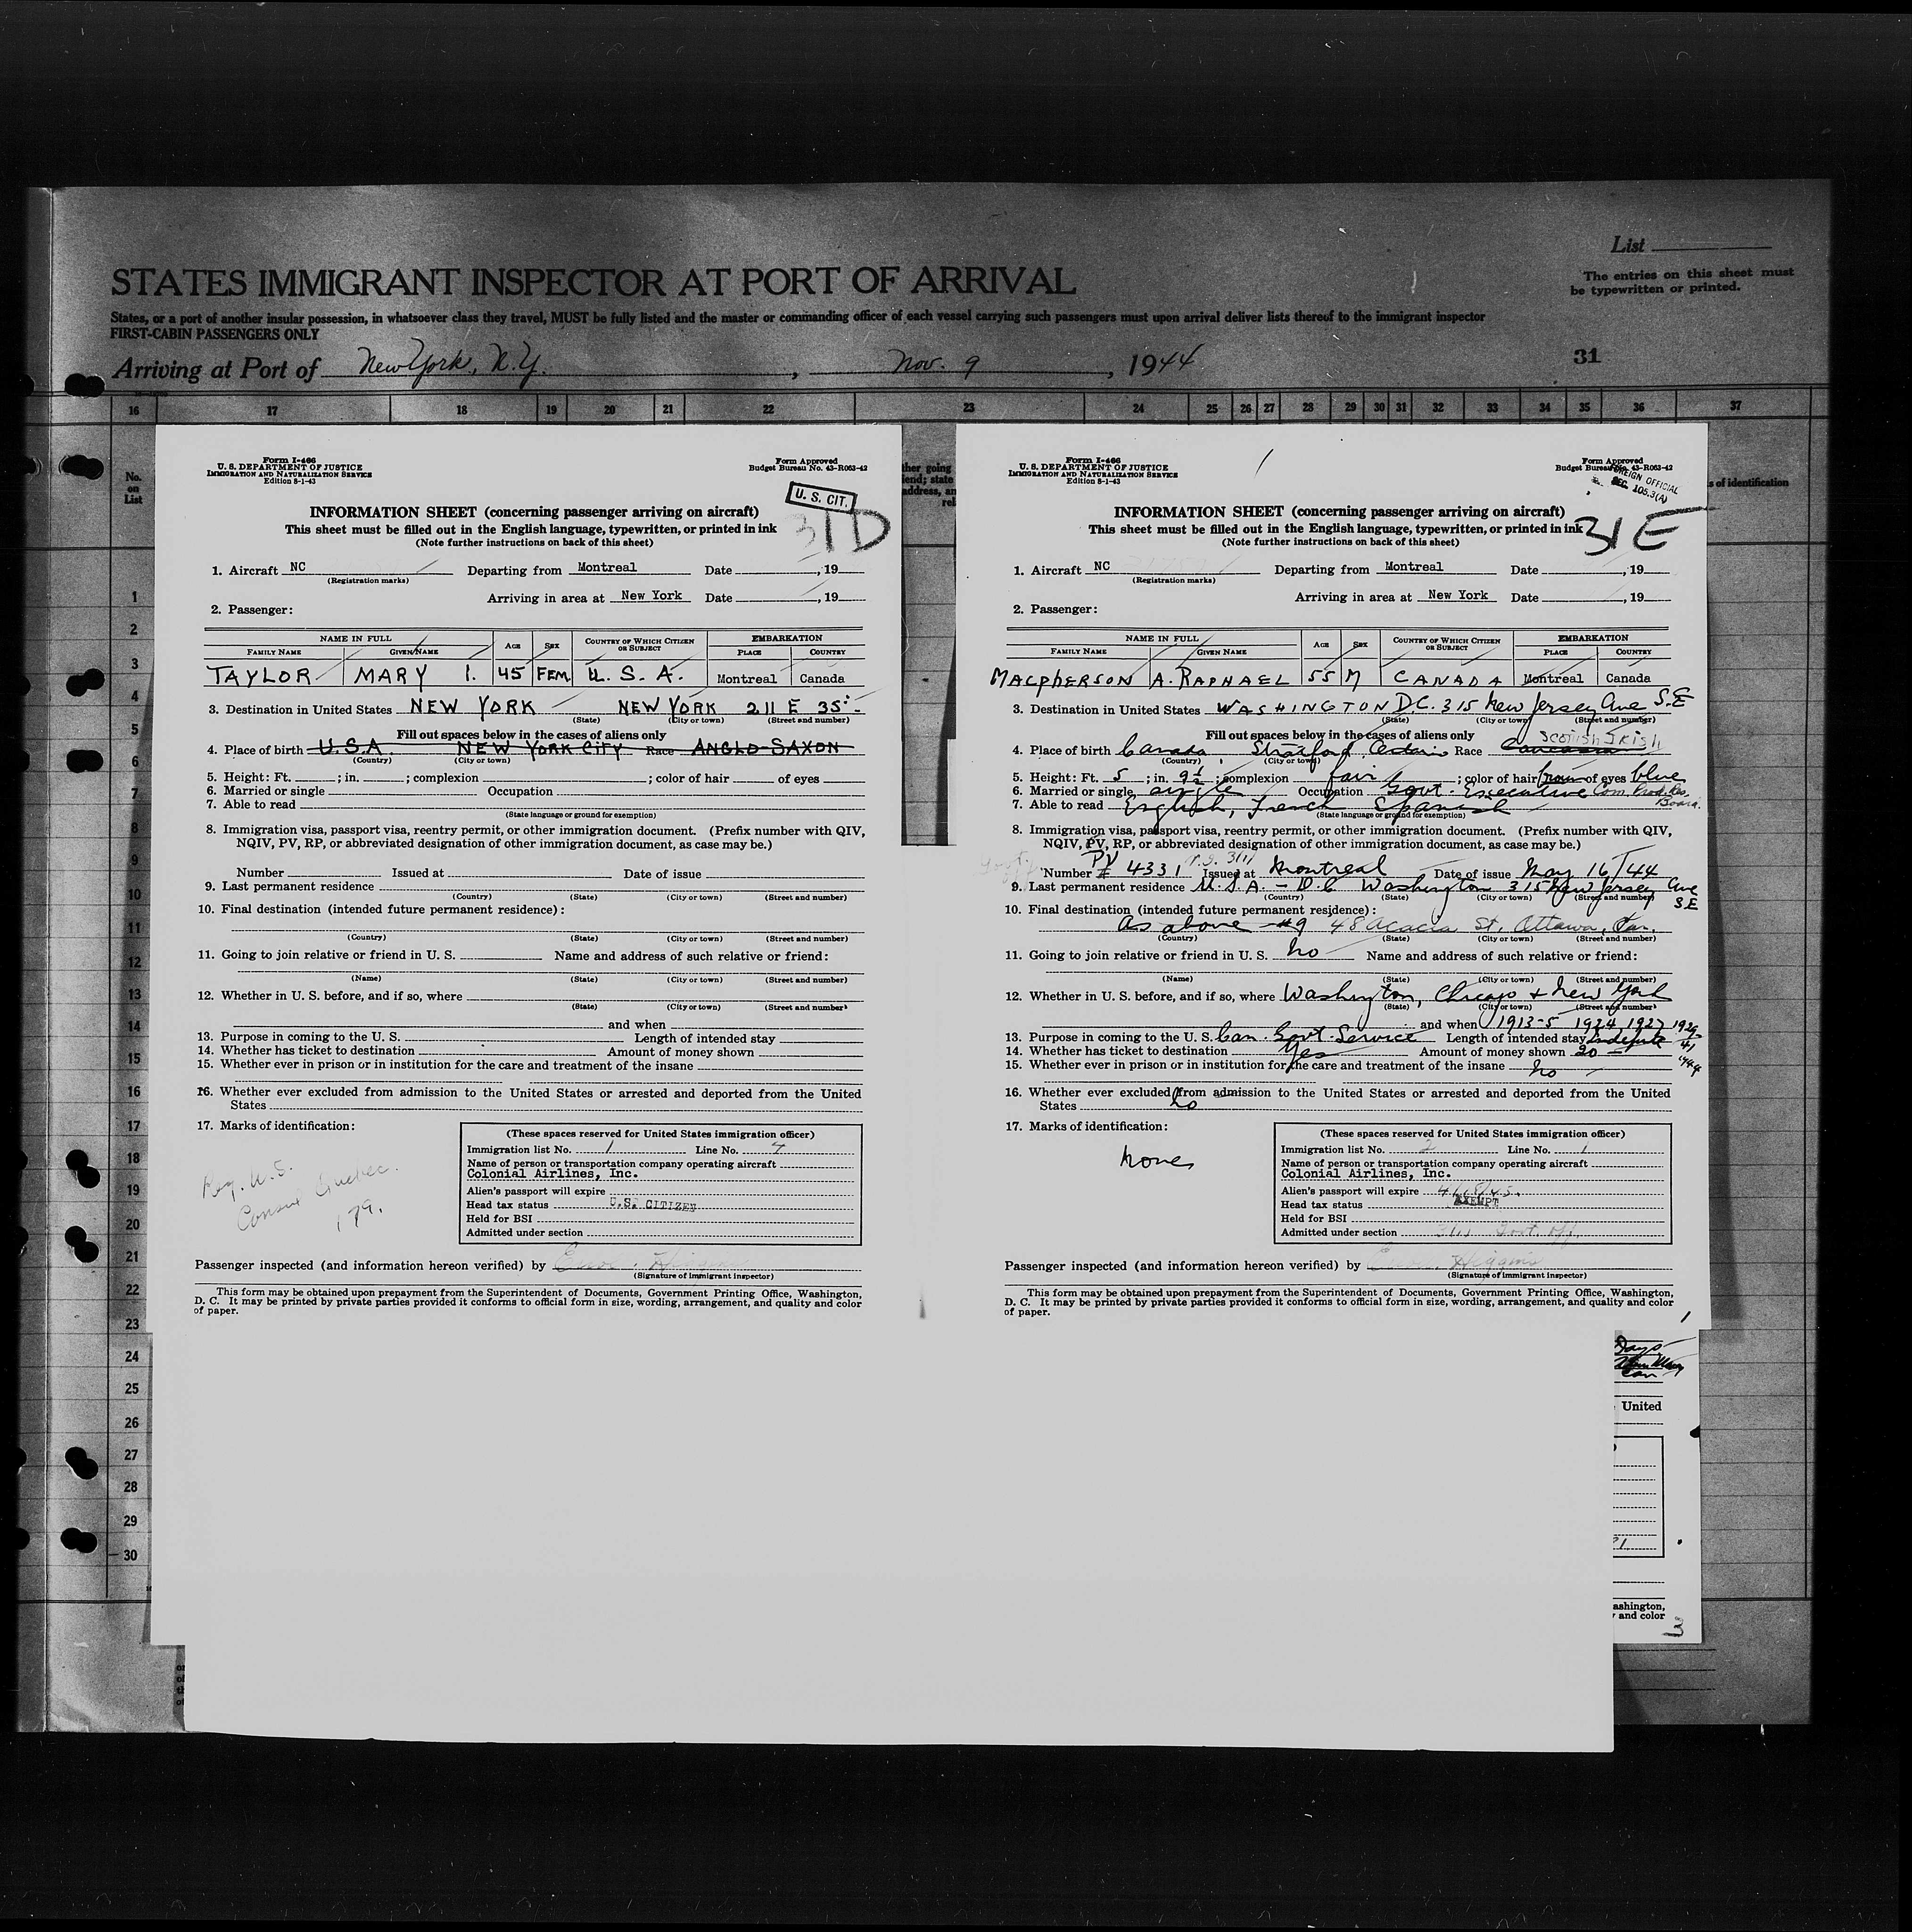 List
STATES IMMIGRANT INSPECTOR AT PORT OF ARRIVAL
The entries on this sheet must
be typewritten or printed.
States, or a port of another insular possession, in whatsoever class they travel, MUST be fully listed and the master or commanding officer of each vessel carrying such passengers must upon arrival deliver lists thereof to the immigrant inspector
FIRST-CABIN PASSENGERS ONLY
Arriving at Port of New York, N.Y., Nov. 9, 1944
31
16 17 18 19 20 21 22 23 24 25 26 27 28 29 30 31 32 33 34 35 36 37
No.
on
List
1
2
3
4
5
6
7
8
9
10
11
12
13
14
15
16
17
18
19
20
21
22
23
24
25
26
27
28
29
30
Form I-466
U. S. DEPARTMENT OF JUSTICE
IMMIGRATION AND NATURALIZATION SERVICE
Edition 8-1-43
Form Approved
Budget Bureau No. 43-R063-42
U. S. CIT.
31D
INFORMATION SHEET (concerning passenger arriving on aircraft)
This sheet must be filled out in the English language, typewritten, or printed in ink
(Note further instructions on back of this sheet)
1. Aircraft NC Departing from Montreal Date , 19
(Registration marks)
Arriving in area at New York Date , 19
2. Passenger:
NAME IN FULL AGE SEX COUNTRY OF WHICH CITIZEN OR SUBJECT EMBARKATION
FAMILY NAME GIVEN NAME PLACE COUNTRY
TAYLOR MARY I. 45 FEM U. S. A. Montreal Canada
3. Destination in United States NEW YORK NEW YORK 211 E 35
(State) (City or town) (Street and number)
Fill out spaces below in the cases of aliens only
4. Place of birth U.S.A NEW YORK CITY Race ANGLO-SAXON
(Country) (City or town)
5. Height: Ft. ; in. ; complexion ; color of hair of eyes
6. Married or single Occupation
7. Able to read
(State language or ground for exemption)
8. Immigration visa, passport visa, reentry permit, or other immigration document. (Prefix number with QIV,
NQIV, PV, RP, or abbreviated designation of other immigration document, as case may be.)
Number Issued at Date of issue
9. Last permanent residence
(Country) (State) (City or town) (Street and number)
10. Final destination (intended future permanent residence):
(Country) (State) (City or town) (Street and number)
11. Going to join relative or friend in U. S. Name and address of such relative or friend:
(Name) (State) (City or town) (Street and number)
12. Whether in U. S. before, and if so, where
(State) (City or town) (Street and number)
and when
13. Purpose in coming to the U. S. Length of intended stay
14. Whether has ticket to destination Amount of money shown
15. Whether ever in prison or in institution for the care and treatment of the insane
16. Whether ever excluded from admission to the United States or arrested and deported from the United
States
17. Marks of identification:
Reg. U.S.
Consul Quebec.
179.
(These spaces reserved for United States immigration officer)
Immigration list No. 1 Line No. 4
Name of person or transportation company operating aircraft
Colonial Airlines, Inc.
Alien's passport will expire
Head tax status U.S. CITIZEN
Held for BSI
Admitted under section
Passenger inspected (and information hereon verified) by Higgins
(Signature of immigrant inspector)
This form may be obtained upon prepayment from the Superintendent of Documents, Government Printing Office, Washington,
D. C. It may be printed by private parties provided it conforms to official form in size, wording, arrangement, and quality and color
of paper.
ther going
iend; state
address, an
rel
Form I-466
U. S. DEPARTMENT OF JUSTICE
IMMIGRATION AND NATURALIZATION SERVICE
Edition 8-1-43
Form Approved
Budget Bureau No. 43-R063-42
FOREIGN OFFICIAL
SEC. 105.3(A)
s of identification
31E
INFORMATION SHEET (concerning passenger arriving on aircraft)
This sheet must be filled out in the English language, typewritten, or printed in ink
(Note further instructions on back of this sheet)
1. Aircraft NC Departing from Montreal Date , 19
(Registration marks)
Arriving in area at New York Date , 19
2. Passenger:
NAME IN FULL AGE SEX COUNTRY OF WHICH CITIZEN OR SUBJECT EMBARKATION
FAMILY NAME GIVEN NAME PLACE COUNTRY
MACPHERSON A. RAPHAEL 55 M CANADA Montreal Canada
3. Destination in United States WASHINGTON D.C. 315 New Jersey Ave S.E
(State) (City or town) (Street and number)
Fill out spaces below in the cases of aliens only
4. Place of birth Canada Stratford Ontario Race Caucasian Scotish Irish
(Country) (City or town)
5. Height: Ft. 5 ; in. 9½ ; complexion fair ; color of hair brown of eyes blue
6. Married or single single Occupation Govt. Executive Com. Prod. Res. Board.
7. Able to read English, French Spanish
(State language or ground for exemption)
8. Immigration visa, passport visa, reentry permit, or other immigration document. (Prefix number with QIV,
NQIV, PV, RP, or abbreviated designation of other immigration document, as case may be.)
Number PV # 4331 Issued at Montreal Date of issue May 16/44
9. Last permanent residence U.S.A. - D.C Washington 315 New Jersey Ave SE
(Country) (State) (City or town) (Street and number)
10. Final destination (intended future permanent residence):
As above #9 48 Acacia St. Ottawa, Can.
(Country) (State) (City or town) (Street and number)
11. Going to join relative or friend in U. S. No Name and address of such relative or friend:
(Name) (State) (City or town) (Street and number)
12. Whether in U. S. before, and if so, where Washington, Chicago + New York
(State) (City or town) (Street and number)
and when 1913-5 1924, 1927 1929 41 1944
13. Purpose in coming to the U. S. Can. Govt. Service Length of intended stay Indefinite
14. Whether has ticket to destination Yes Amount of money shown 20
15. Whether ever in prison or in institution for the care and treatment of the insane No
16. Whether ever excluded from admission to the United States or arrested and deported from the United
States No
17. Marks of identification:
None
(These spaces reserved for United States immigration officer)
Immigration list No. 2 Line No. 1
Name of person or transportation company operating aircraft
Colonial Airlines, Inc.
Alien's passport will expire
Head tax status EXEMPT
Held for BSI
Admitted under section 3(1) Govt. Off.
Passenger inspected (and information hereon verified) by Higgins
(Signature of immigrant inspector)
This form may be obtained upon prepayment from the Superintendent of Documents, Government Printing Office, Washington,
D. C. It may be printed by private parties provided it conforms to official form in size, wording, arrangement, and quality and color
of paper.
Days
Can
United
ashington,
and color
3